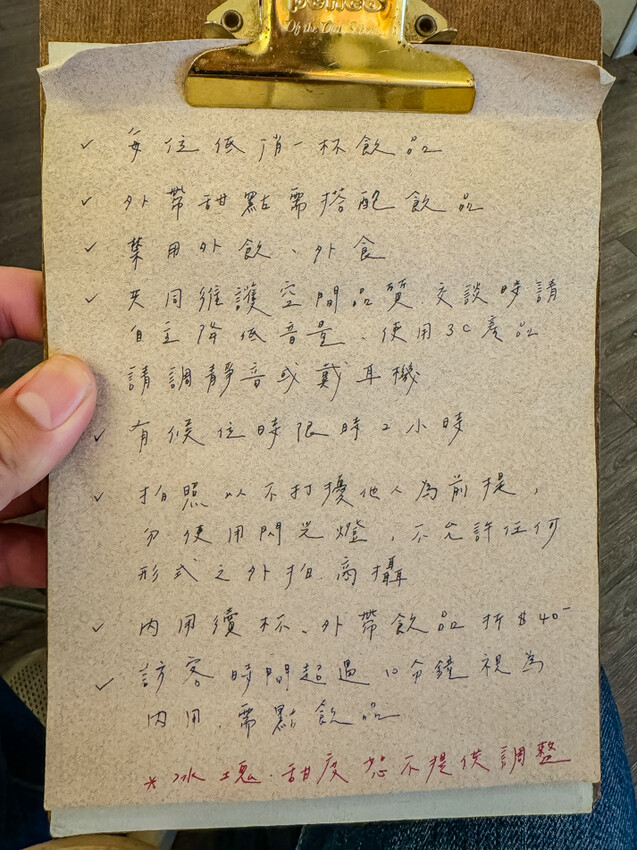 penco
Of the Old School
✓ 每位低消一杯飲品
✓ 外帶甜點需搭配飲品
✓ 禁用外飲、外食
✓ 共同維護空間品質.交談時請
自主降低音量、使用3C產品
請調靜音或戴耳機
✓ 有候位時限時2小時
✓ 拍照以不打擾他人為前提,
勿使用閃光燈,不允許任何
形式之外拍.商攝
✓ 內用續杯、外帶飲品折$40-
✓ 訪客時間超過10分鐘視為
內用.需點飲品
*冰塊.甜度恕不提供調整